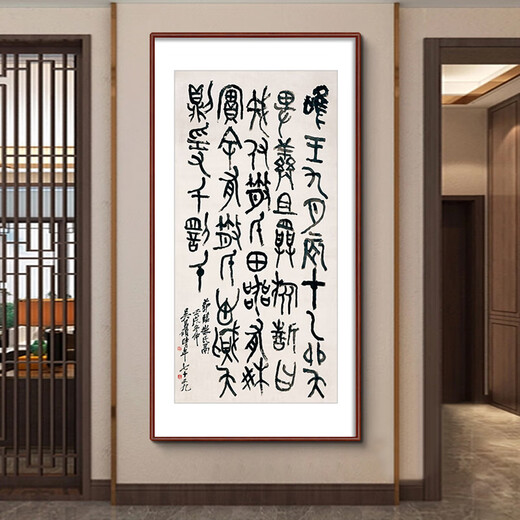 唯王九月辰才乙卯矢
卑且旅誓曰
我既付散氏田器有爽
實余有散氏心賊
則爰千罰千
節臨散氏鬲
壬戌
吳昌碩時年七十九